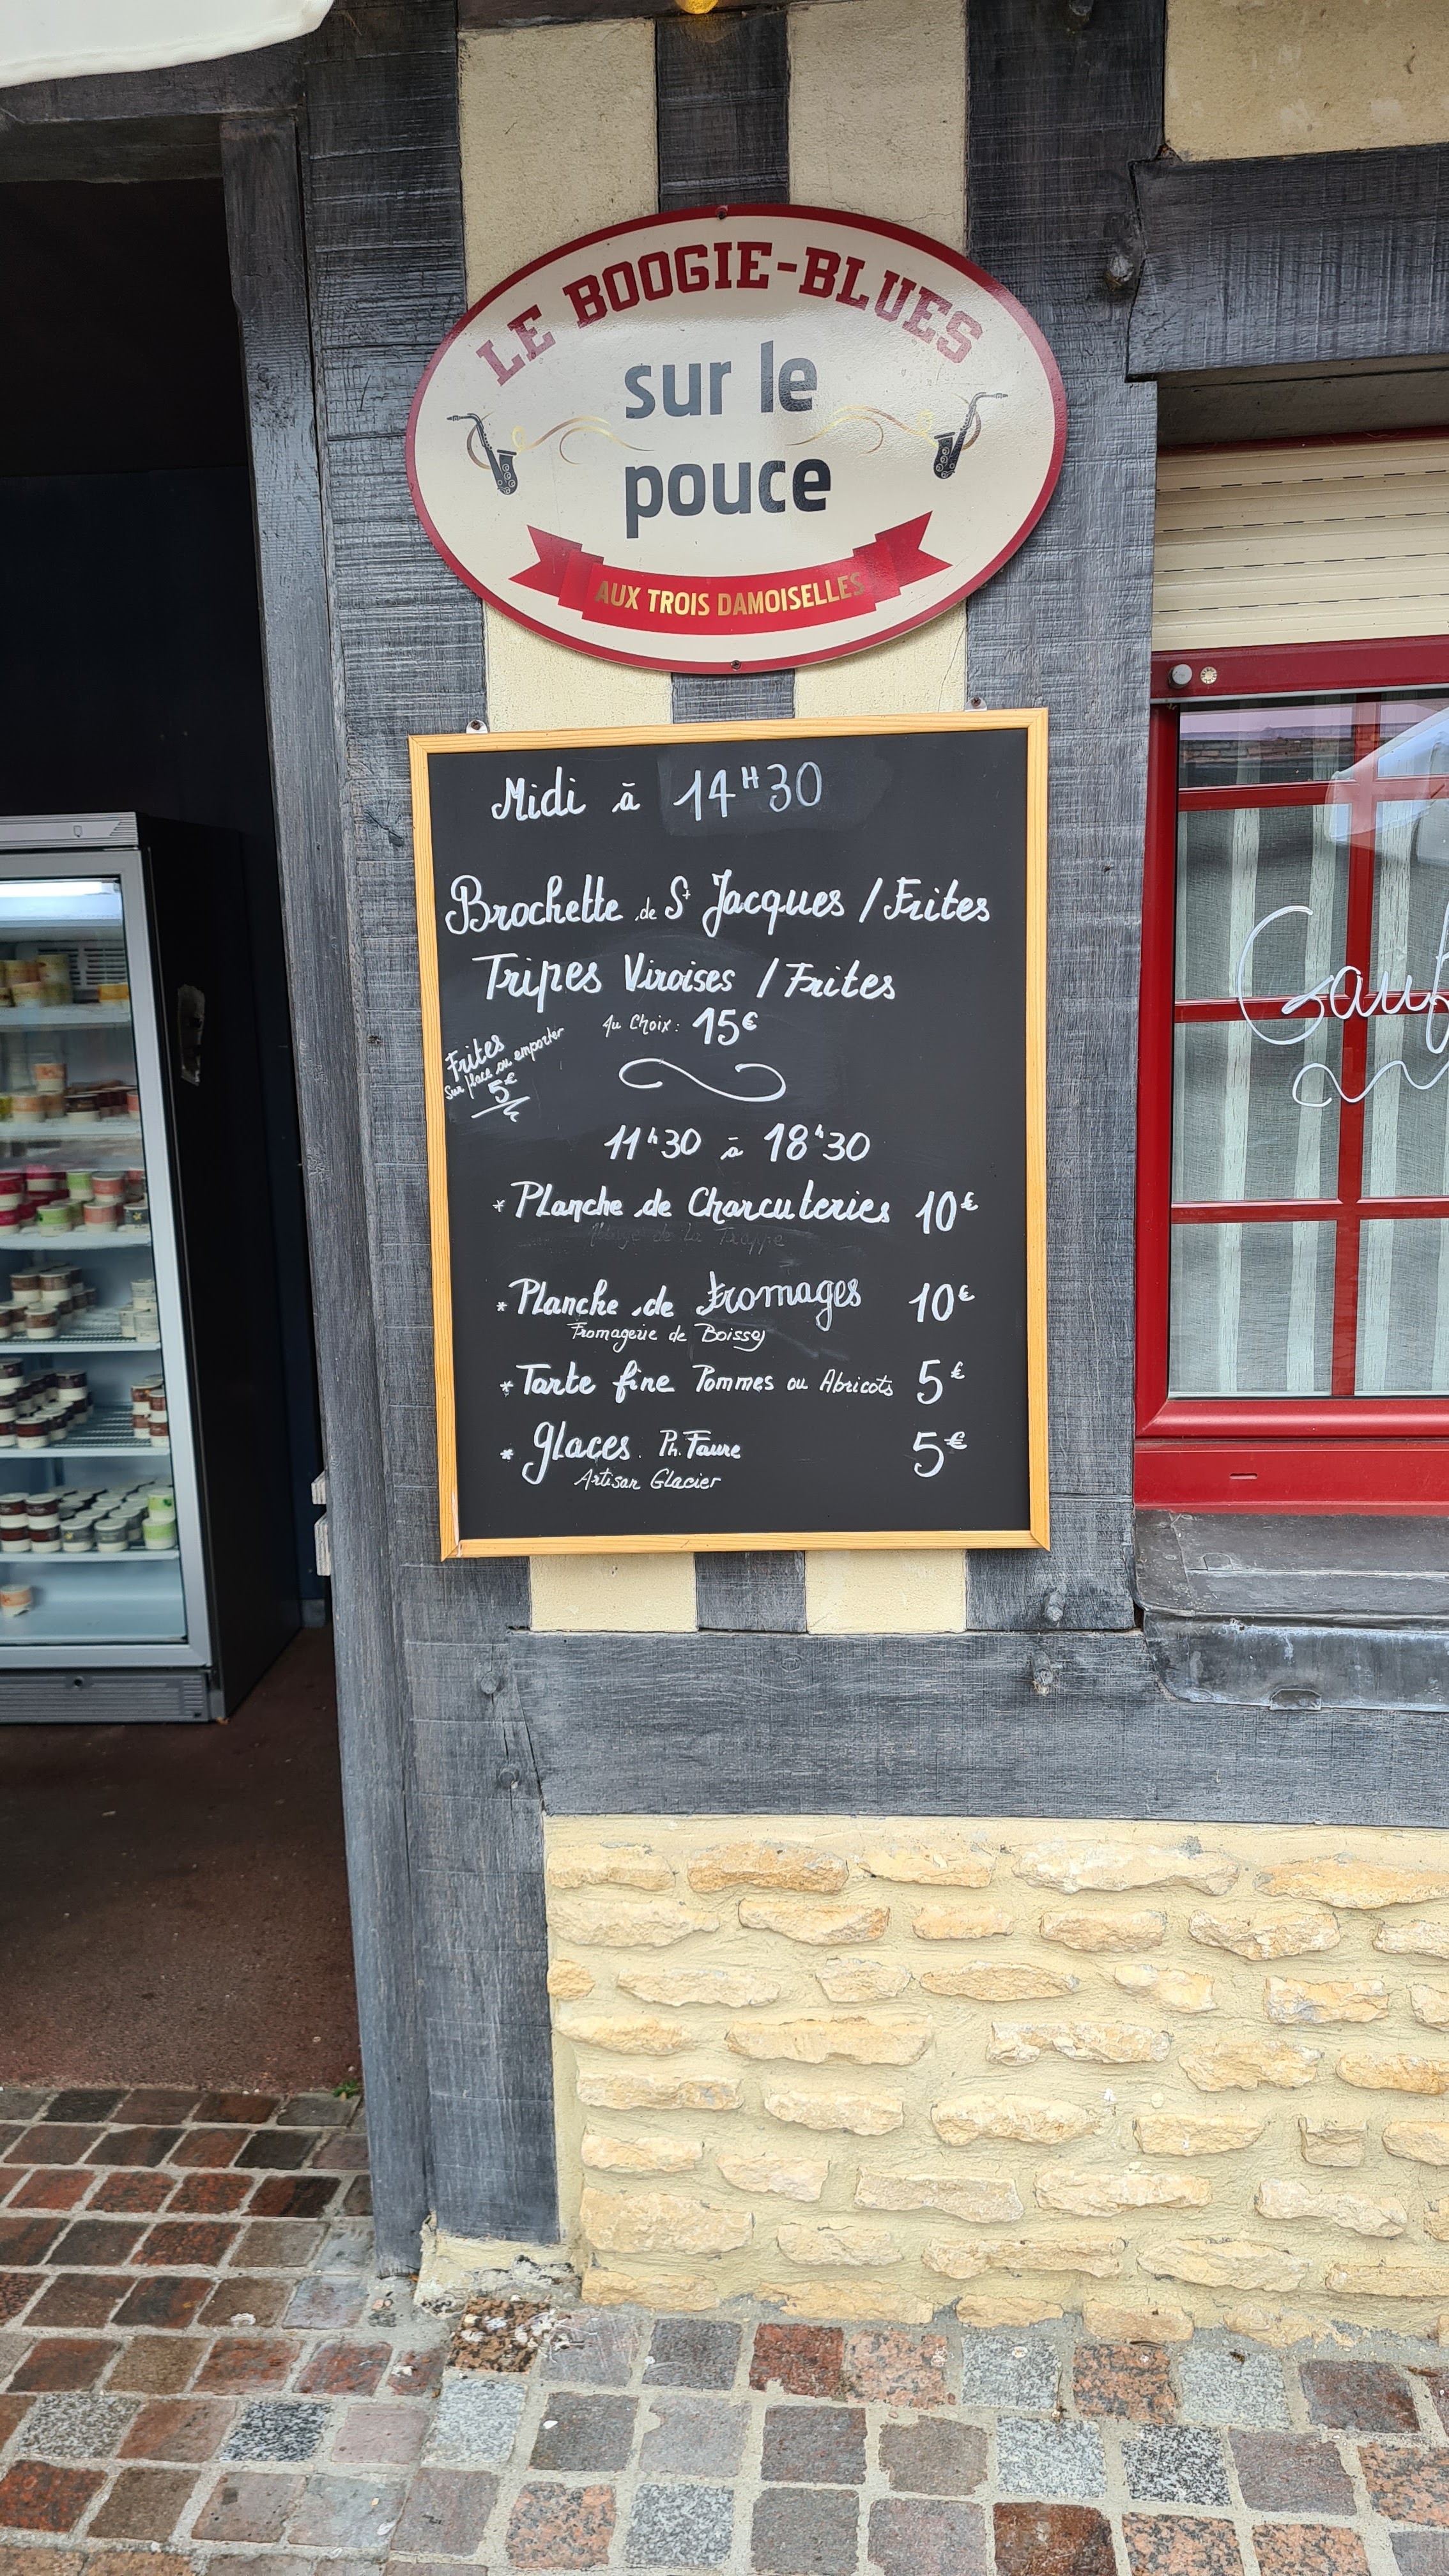 LE BOOGIE-BLUES
sur le
pouce
AUX TROIS DAMOISELLES
Midi à 14H30
Brochette de St Jacques / Frites
Tripes Viroises / Frites
Au Choix: 15€
Frites
Sur place ou emporter
5€
11h30 à 18h30
* Planche de Charcuteries 10€
* Planche de Fromages 10€
Fromagerie de Boissey
* Tarte fine Pommes ou Abricots 5€
* Glaces. Ph. Faure 5€
Artisan Glacier